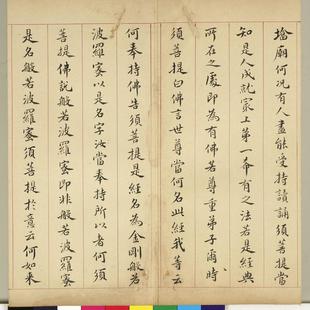 塔廟何況有人盡能受持讀誦須菩提當
知是人成就㝡上第一希有之法若是經典
所在之處即為有佛若尊重弟子爾時
須菩提白佛言世尊當何名此經我等云
何奉持佛告須菩提是經名為金剛般若
波羅蜜以是名字汝當奉持所以者何須
菩提佛說般若波羅蜜即非般若波羅蜜
是名般若波羅蜜須菩提於意云何如来